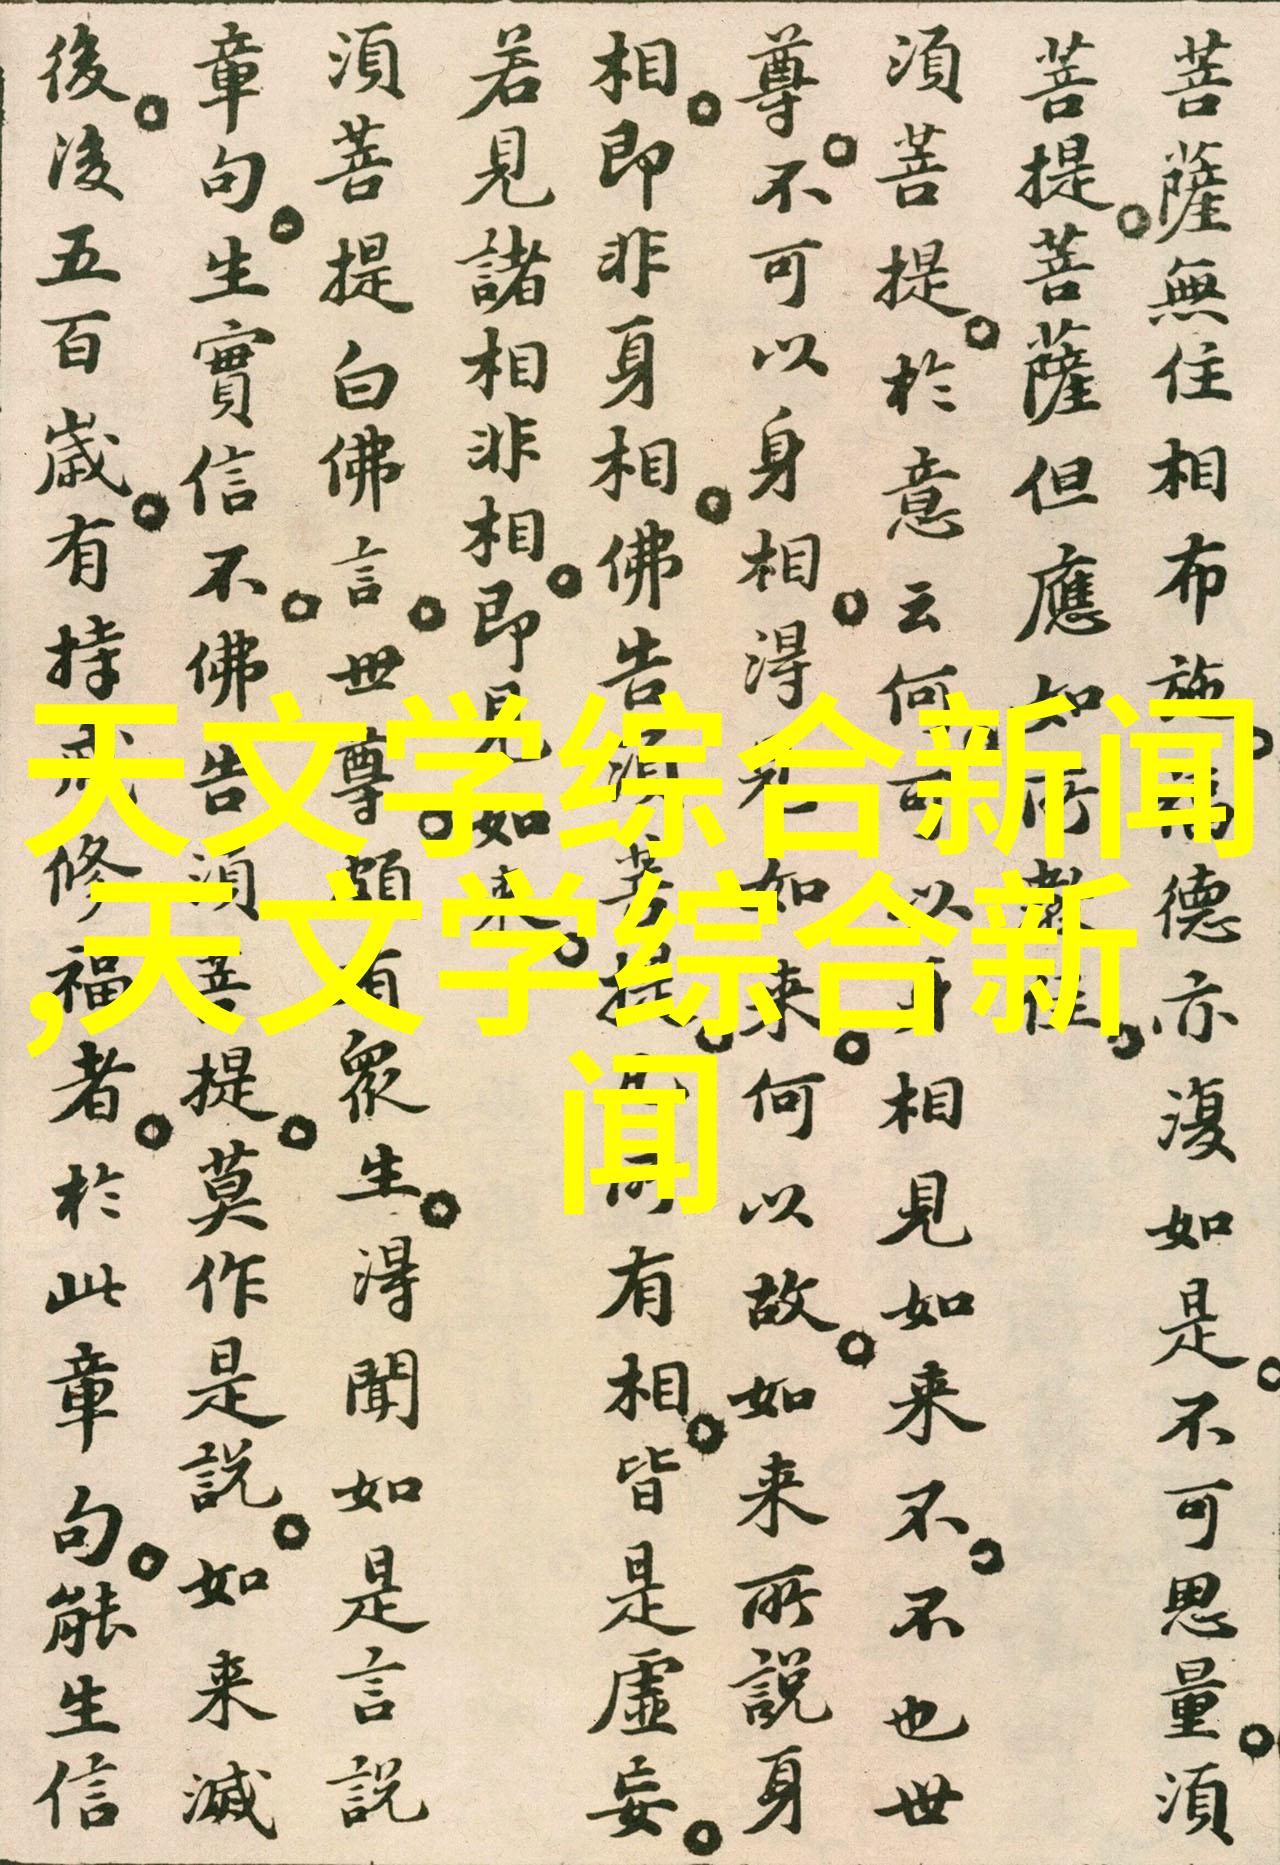 菩薩無住相布施。福德亦復如是。不可思量。須
菩提。菩薩但應如所教住。
須菩提。於意云何可以身相見如来不。不也世
尊。不可以身相。得見如来。何以故。如来所說身
相。即非身相。佛告須菩提。凡所有相。皆是虛妄。
若見諸相非相。即見如来。
須菩提白佛言。世尊。頗有眾生。得聞如是言說
章句。生實信不。佛告須菩提。莫作是說。如来滅
後。後五百歲。有持戒修福者。於此章句。能生信
天文学综合新闻
,天文学综合新
闻